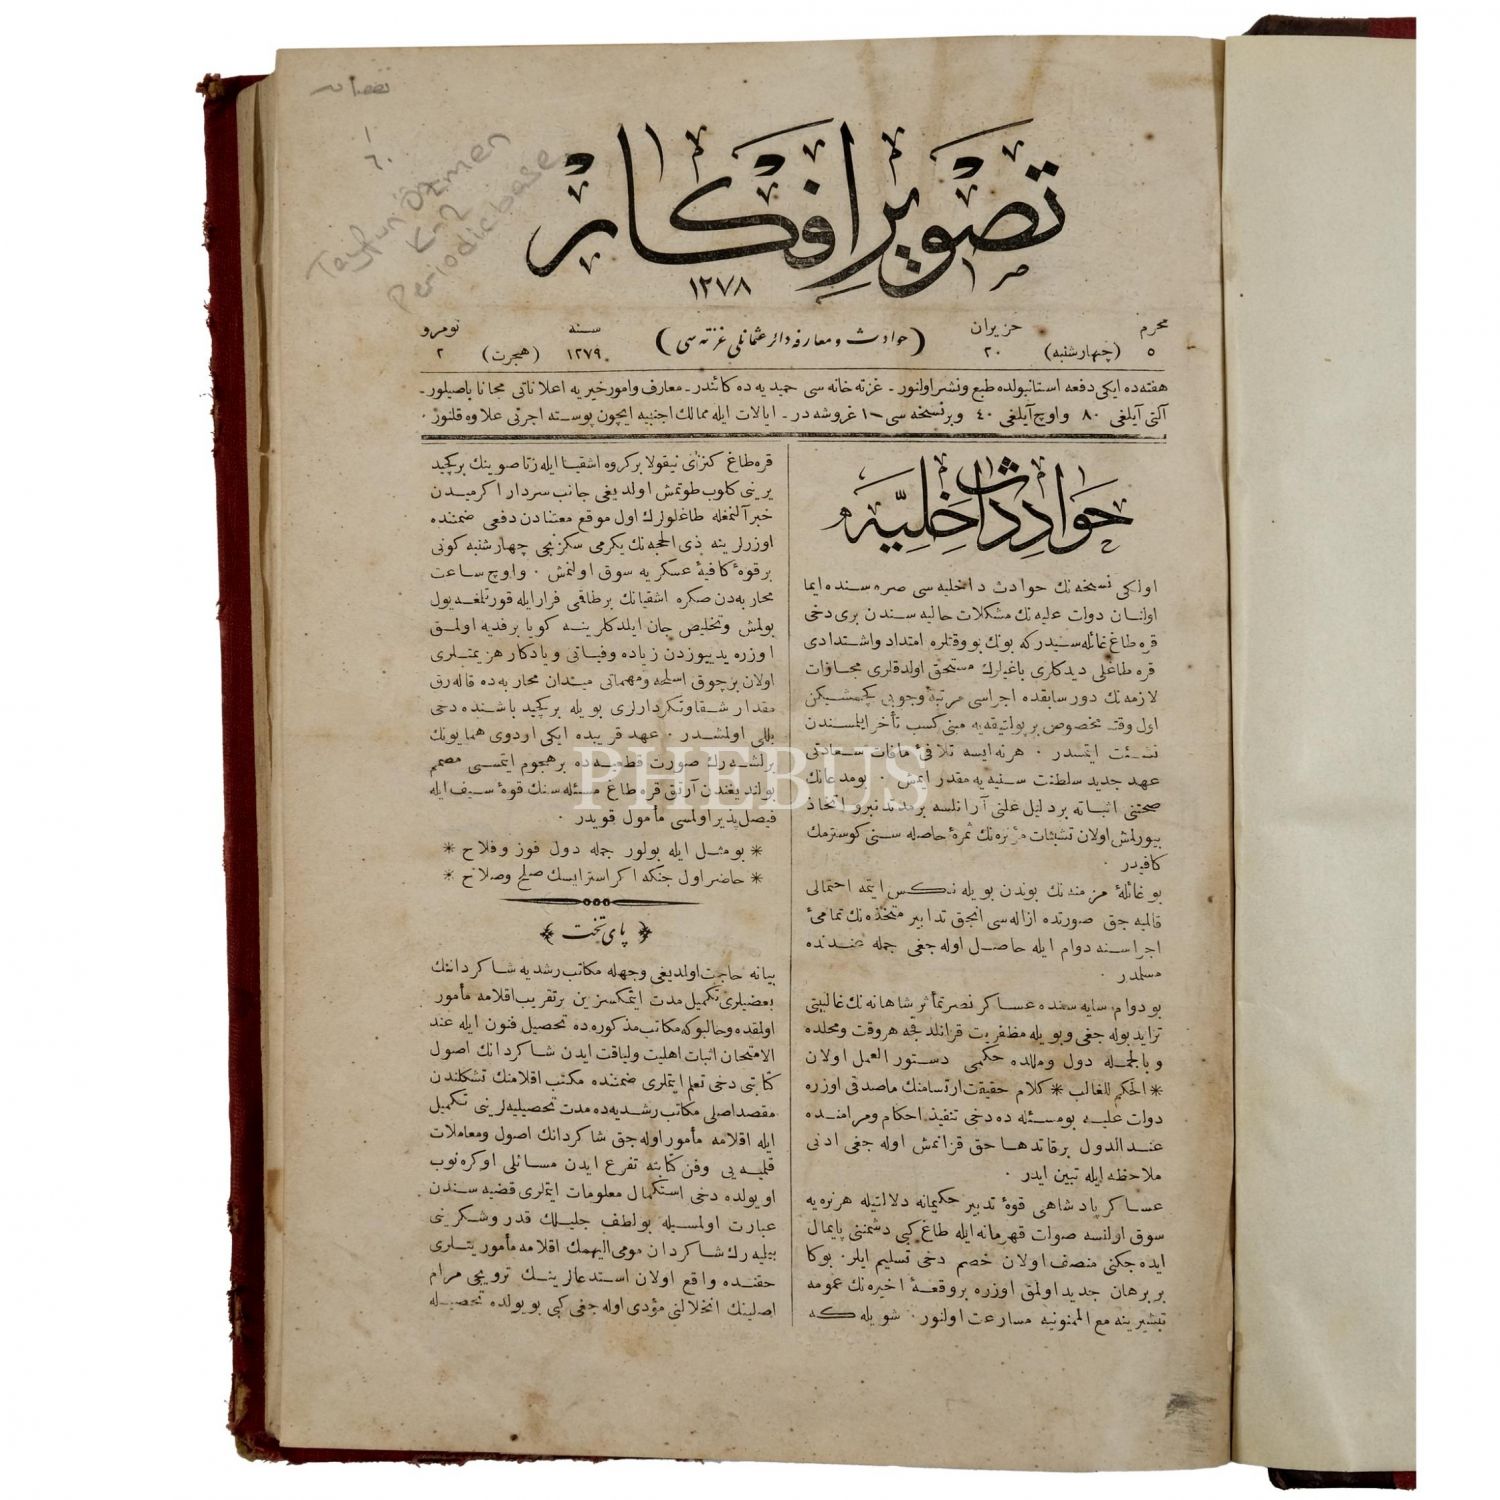 نقصانسز
Tayfun Özmen
Periodic base
تصوير افكار
١٢٧٨
محرم
٥
(چهارشنبه)
حزيران
٢٠
(حوادث ومعارفه دائر عثمانلى غزته سى)
سنه
١٢٧٩
(هجرت)
نومرو
٢
هفته ده ايكى دفعه استانبولده طبع ونشر اولنور ـ غزته خانه سى حميديه ده كائندر ـ معارف وامور خيريه اعلاناتى مجانا باصيلور ـ
آلتى آيلغى ٨٠ واوچ آيلغى ٤٠ وبر نسخه سى ١٠ غروشه در ـ ايالات ايله ممالك اجنبيه ايچون پوسته اجرتى علاوه قلنور ٠
حوادث داخليه
اولكى نسخه نك حوادث داخليه سى صره سنده ايما
اولنان دولت عليه نك مشكلات حاليه سندن برى دخى
قره طاغ غائله سيدركه بونك بو وقتلره امتداد واشتدادى
قره طاغلى ديدكلرى باغيلرك مستحق اولدقلرى مجازات
لازمه نك دور سابقده اجراسى مرتبۀ وجوبى كچمشيكن
اول وقتـ مخصوص بر پولتيقه يه مبنى كسب تأخر ايلمسندن
نشئت ايتمشدر ٠ هر نه ايسه تلافئ مافات سعادتى
عهد جديد سلطنت سنيه يه مقدر ايمش ٠ بو مدعانك
صحتنى اثباته بر دليل علنى آرانلسه بر مدتدنبرو اتخاذ
بيورلمش اولان تشبثات مؤثره نك ثمرۀ حاصله سنى كوسترمك
كافيدر ٠
بو غائلۀ مزمنه نك بوندن بويله نكس ايتمه احتمالى
قالميه جق صورتده ازاله سى انجق تدابير متخذه نك تمامئ
اجراسنه دوام ايله حاصل اوله جغى جمله عندنده
مسلمدر ٠
بو دوام سايه سنده عساكر نصرتمأثر شاهانه نك غالبيتى
تزايد بوله جغى وبويله مظفريت قزانلدقجه هر وقت ومحلده
وبالجمله دول ومللده حكمى دستور العمل اولان
✳ الحكم للغالب ✳ كلام حقيقت ارتسامنك ماصدقى اوزره
دولت عليه بو مسئله ده دخى تنفيذ احكام ومرامنده
عند الدول بر قاتدها حق قزانمش اوله جغى ادنى
ملاحظه ايله تبين ايدر ٠
عساكر پادشاهى قوۀ تدبير حكيمانه دلالتيله هر نره يه
سوق اولنسه صولت قهرمانه ايله طاغ كبى دشمننى پايمال
ايده جكنى منصف اولان خصم دخى تسليم ايلر ٠ بوكا
بر برهان جديد اولمق اوزره بر وقعۀ اخيره نك عمومه
تبشيرينه مع الممنونيه مسارعت اولنور ٠ شويله كه
قره طاغ كنزاى نيقولا بر كروه اشقيا ايله زتا صوينك بر كچيد
يرينى كلوب طوتمش اولديغى جانب سردار اكرميدن
خبر آلنمغله طاغلولرك اول موقع معتنادن دفعى ضمننده
اوزرلرينه ذى الحجه نك يكرمى سكزنجى چهارشنبه كونى
بر قوۀ كافيۀ عسكريه سوق اولنمش ٠ واوچ ساعت
محاربه دن صكره اشقيانك بر طاقمى فرار ايله قورتلمغه يول
بولمش وتخليص جان ايلدكلرينه كويا بر فديه اولمق
اوزره يديوزدن زياده وفياتى ويادكار هزيمتلرى
اولان بر چوق اسلحه ومهماتى ميدان محاربه ده قاله رق
مقدار شقاوتكردارلرى بويله بر كچيد باشنده دخى
بللى اولمشدر ٠ عهد قريبده ايكى اردوى همايونك
برلشه رك صورت قطعيه ده بر هجوم ايتمسى مصمم
بولنديغندن آرتق قره طاغ مسئله سنك قوۀ سيف ايله
فيصلپذير اولمسى مأمول قويدر ٠
✳ بو مثل ايله بولور جمله دول فوز وفلاح ✳
✳ حاضر اول جنكه اكر استر ايسك صلح وصلاح ✳
پاى تخت
بيانه حاجت اولديغى وجهله مكاتب رشديه شاكردانتك
بعضيلرى تكميل مدت ايتمكسزين بر تقريب اقلامه مأمور
اولمقده وحالبوكه مكاتب مذكوره ده تحصيل فنون ايله عند
الامتحان اثبات اهليت ولياقت ايدن شاكردانك اصول
كتابتى دخى تعلم ايتملرى ضمننده مكتب اقلامنك تشكلندن
مقصد اصلى مكاتب رشديه ده مدت تحصيليه لرينى تكميل
ايله اقلامه مأمور اوله جق شاكردانك اصول ومعاملات
قلميه يى وفن كتابته تفرع ايدن مسائلى اوكره نوب
او يولده دخى استكمال معلومات ايتملرى قضيه سندن
عبارت اولمسيله بو لطف جليلك قدر وشكرينى
بيليه رك شاكردان مومى اليهمك اقلامه مأموريتلرى
حقنده واقع اولان استدعالرينك ترويجى مرام
اصلينك اخلالنى مؤدى اوله جغى كبى بو يولده تحصيله
PHEBUS